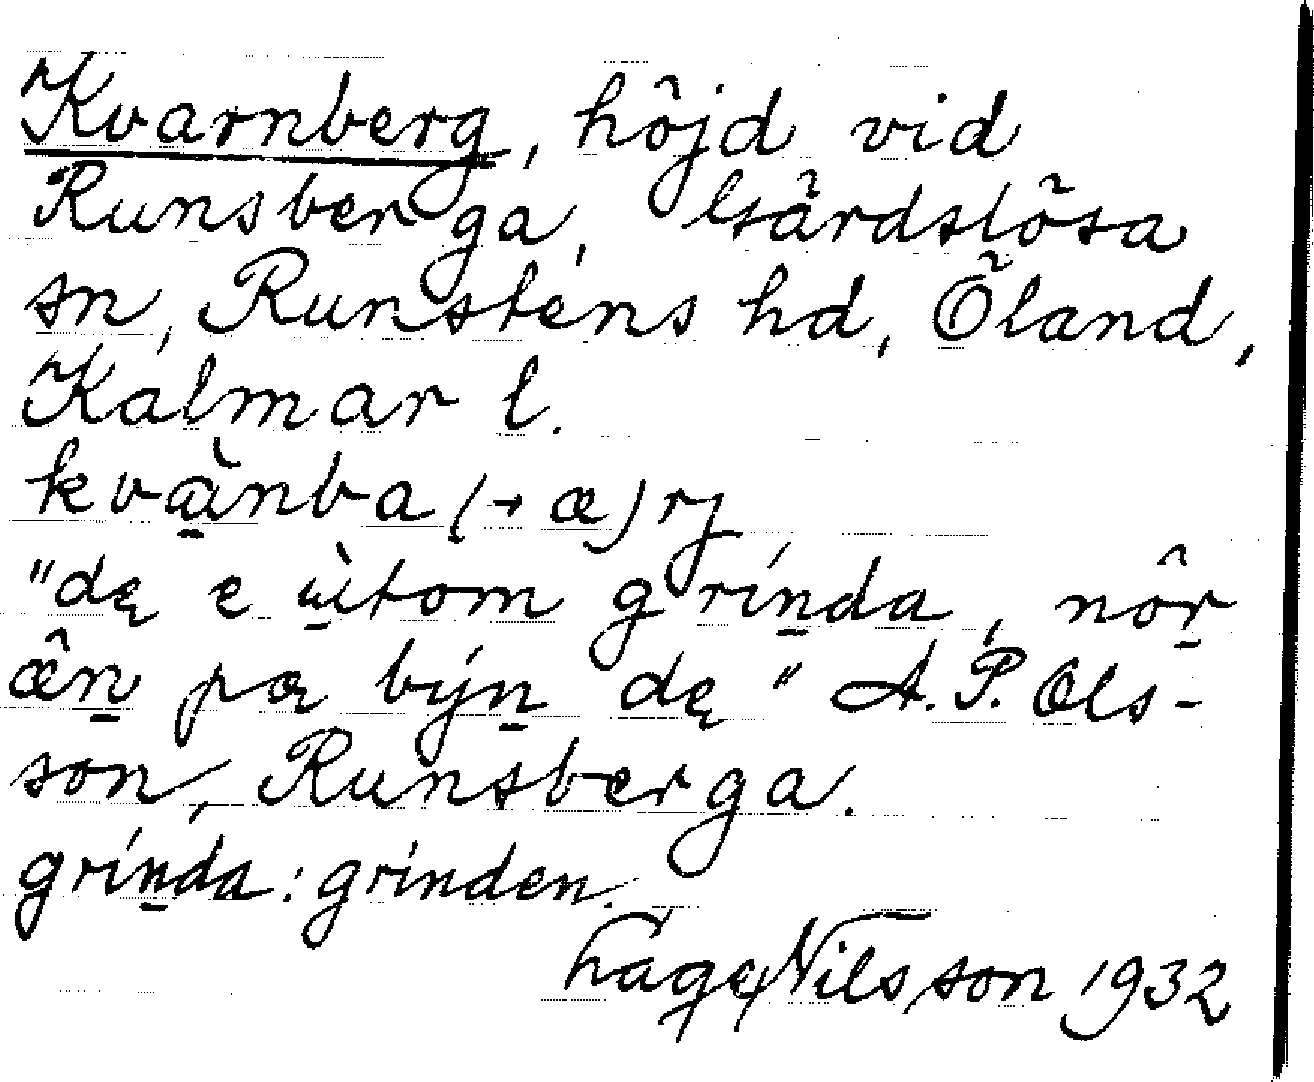 Kvarnberg, höjd vid
Runsberga, Gärdslösa
sn, Runstens hd, Öland,
Kalmar l.
kvànba(→æ)rj
"dę e ùtom grínda, nôr
æ̂n pæ býn dę" A. P. Ols-
son, Runsberga.
grínda: grinden.
Hage Nilsson 1932